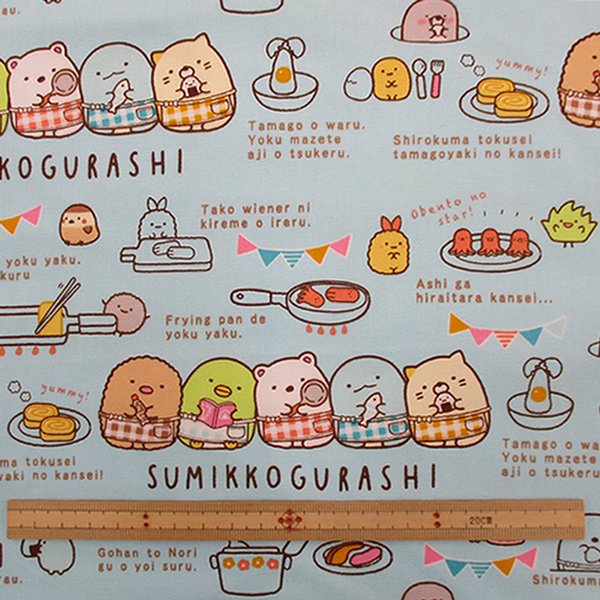 rau.
yummy!
Tamago o waru.
Yoku mazete
aji o tsukeru.
Shirokuma tokusei
tamagoyaki no kansei!
KOGURASHI
Tako wiener ni
kireme o ireru.
Obento no
star!
yoku yaku.
kuru
Ashi ga
hiraitara kansei...
Frying pan de
yoku yaku.
yummy!
ma tokusei
yaki no kansei!
Tamago o wa
Yoku mazete
aji o tsukeru
SUMIKKOGURASHI
20CM
Gohan to Nori
gu o yoi suru.
rau.
Shirokuma